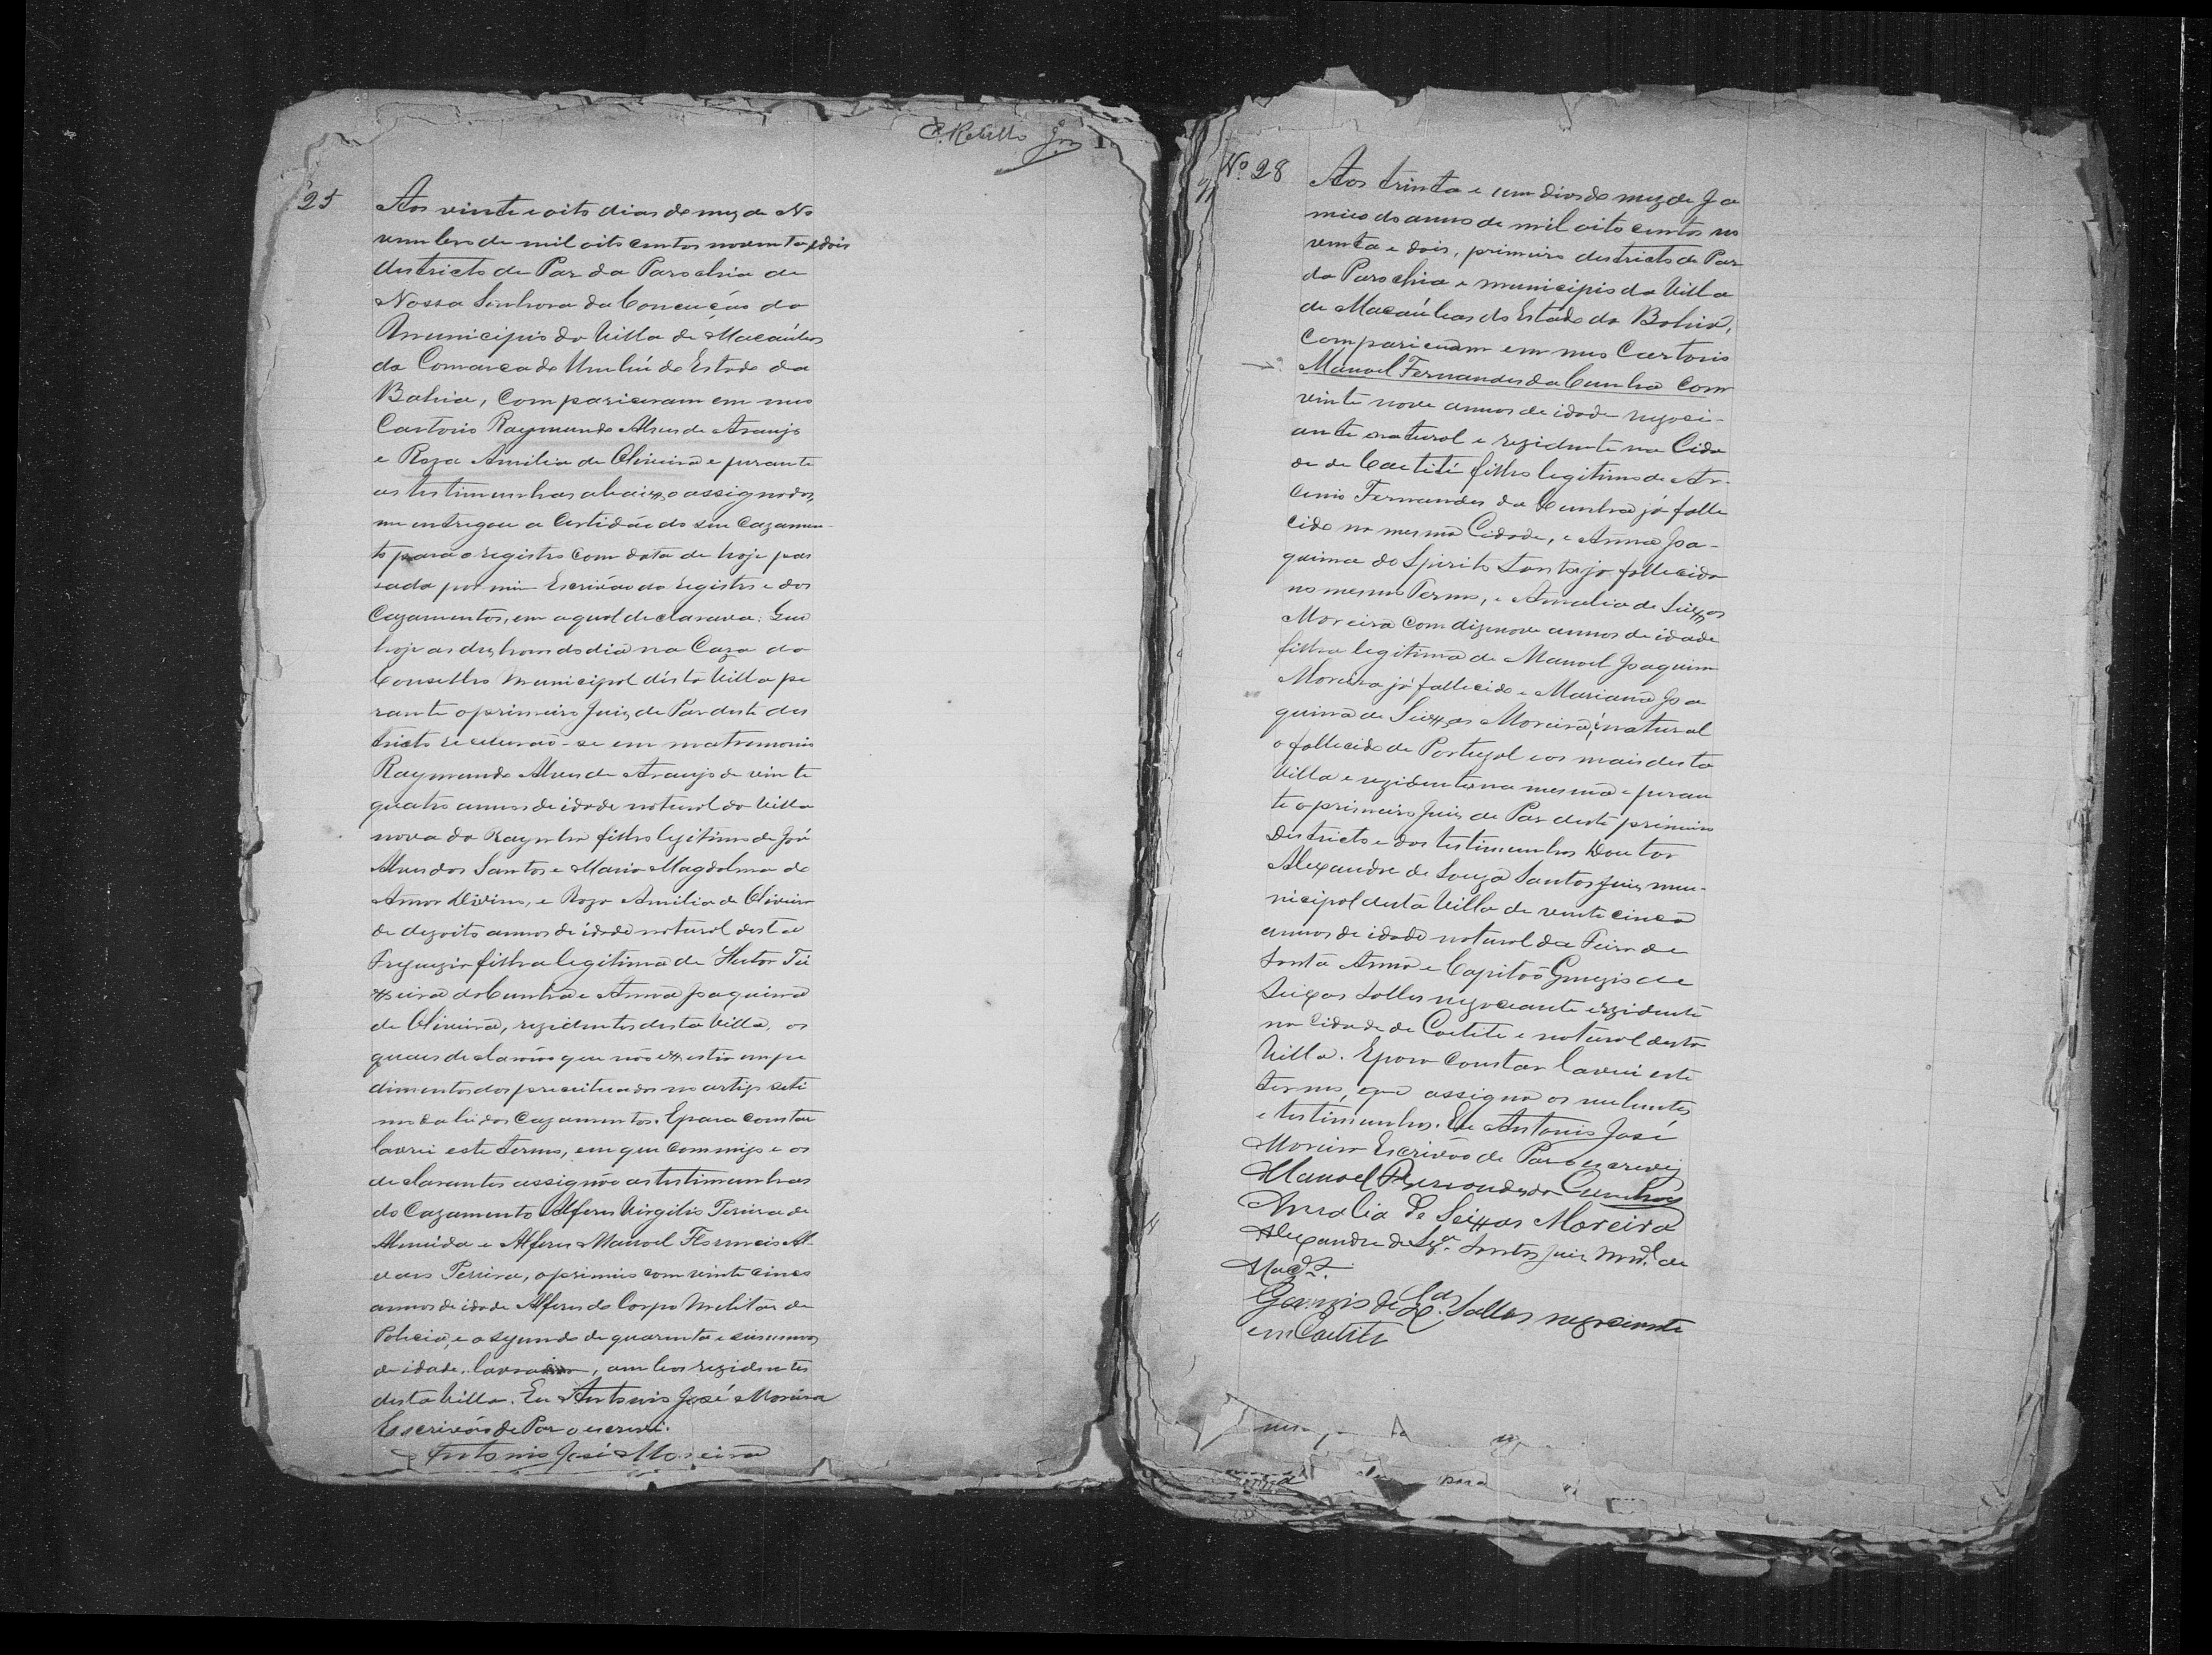 C. Rebello Jor
25
Aos vinte e oito dias do mez de No
vembro de mil oito centos noventa e dois
districto de Paz da Parochia de
Nossa Senhora da Conceição do
Municipio da Villa de Macaúbas
da Comarca de Urubú do Estado da
Bahia, compareceram em meu
Cartorio Raymundo Alves de Araujo
e Roza Amilia de Oliveira e perante
as testimunhas abaixo assignados,
me entregou a Certidão do seu Cazamen-
to para o registro com data de hoje pas
sada por mim Escrivão do registro e dos
Cazamentos, em a qual declarava: Que
hoje as dez horas do dia na Caza do
Conselho Municipal désta Villa pe
rante o primeiro Juiz de Paz deste des
tricto receberão-se em matremonio
Raymundo Alves de Araujo de vinte
quatro annos de idade natural da Villa
nova da Raynha filho legitimo de José
Alves dos Santos e Maria Magdalena do
Amor Divino, e Roza Amilia de Oliveira
de dezoito annos de idade natural desta
Freguezia filha legitima de Heitor Tei
xeira da Cunha e Anna Joaquina
de Oliveira, rezidentes desta Villa, os
quaes declarão que não existir empe
dimentos dos preceituados no artigo seti
mo da lei dos Cazamentos. E para constar
lavrei este termo, em que commigo e os
declarantes assignão as testimunhas
do Cazamento Alferes Virgilio Pereira de
Almeida e Alferes Manoel Florencio Al
vares Pereira, o primeiro com vinte cinco
annos de idade Alferes do Corpo Melitar de
Policia, e o segundo de quarenta e annos
de idade, ambos rezidentes
desta Villa. Eu Antonio José Moreira
Escrivão de Paz o escrevi.
Antonio José Moreira
Nº 28
Aos trinta e um dias do mez de Ja
neiro do anno de mil oito centos no
venta e dois, primeiro destricto de Paz
da Parochia e municipio da Villa
de Macaúbas do Estado da Bahia,
compareceram em meu Cartorio
Manoel Fernandes da Cunha com
vinte nove annos de idade negoci-
ante natural e rezidente na Cida
de de Caetité filho legitimo de Ar-
cenio Fernandes da Cunha já falle
cido na mesma Cidade, e Anna Joa-
quina do Spirito Santo já fallecida
no mesmo Termo, e Amalia de Seixas
Moreira com dizenove annos de idade
filha legitima de Manoel Joaquim
Moreira já fallecido e Mariana Joa
quina de Seixas Moreira, natural
o fallecido de Portugal e os mais desta
Villa e rezidentes na mesma e peran
te o primeiro Juiz de Paz deste primeiro
Destricto e das testimunhas Doutor
Alexandre de Souza Santos Juiz mu-
nicipal desta Villa de vente cinco
annos de idade natural da Feira de
Santa Anna e Capitão Genezio de
Seixas Salles negociante rezidente
na Cidade de Caetite e natural desta
Villa. E para constar lavrei este
termo, que assigna os nubentes
e testimunhas. Eu Antonio José
Moreira Escrivão de Paz o escrevi
Manoel Fernandes da Cunha
Amalia de Seixas Moreira
Alexandre de Sza. Santos Juiz Mal. de
Genezio de Salles negociante
em Caetité
para